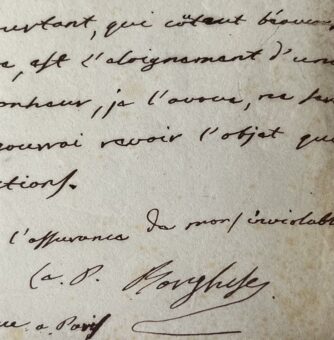 urtant, qui côtent beaucou
e, est l'aloignement d'une
onheur, je l'avoue, ne se
ourrai revoir l'objet que
ctions.
l'assurance de mon inviolable
La P. Borghese
ue a Paris